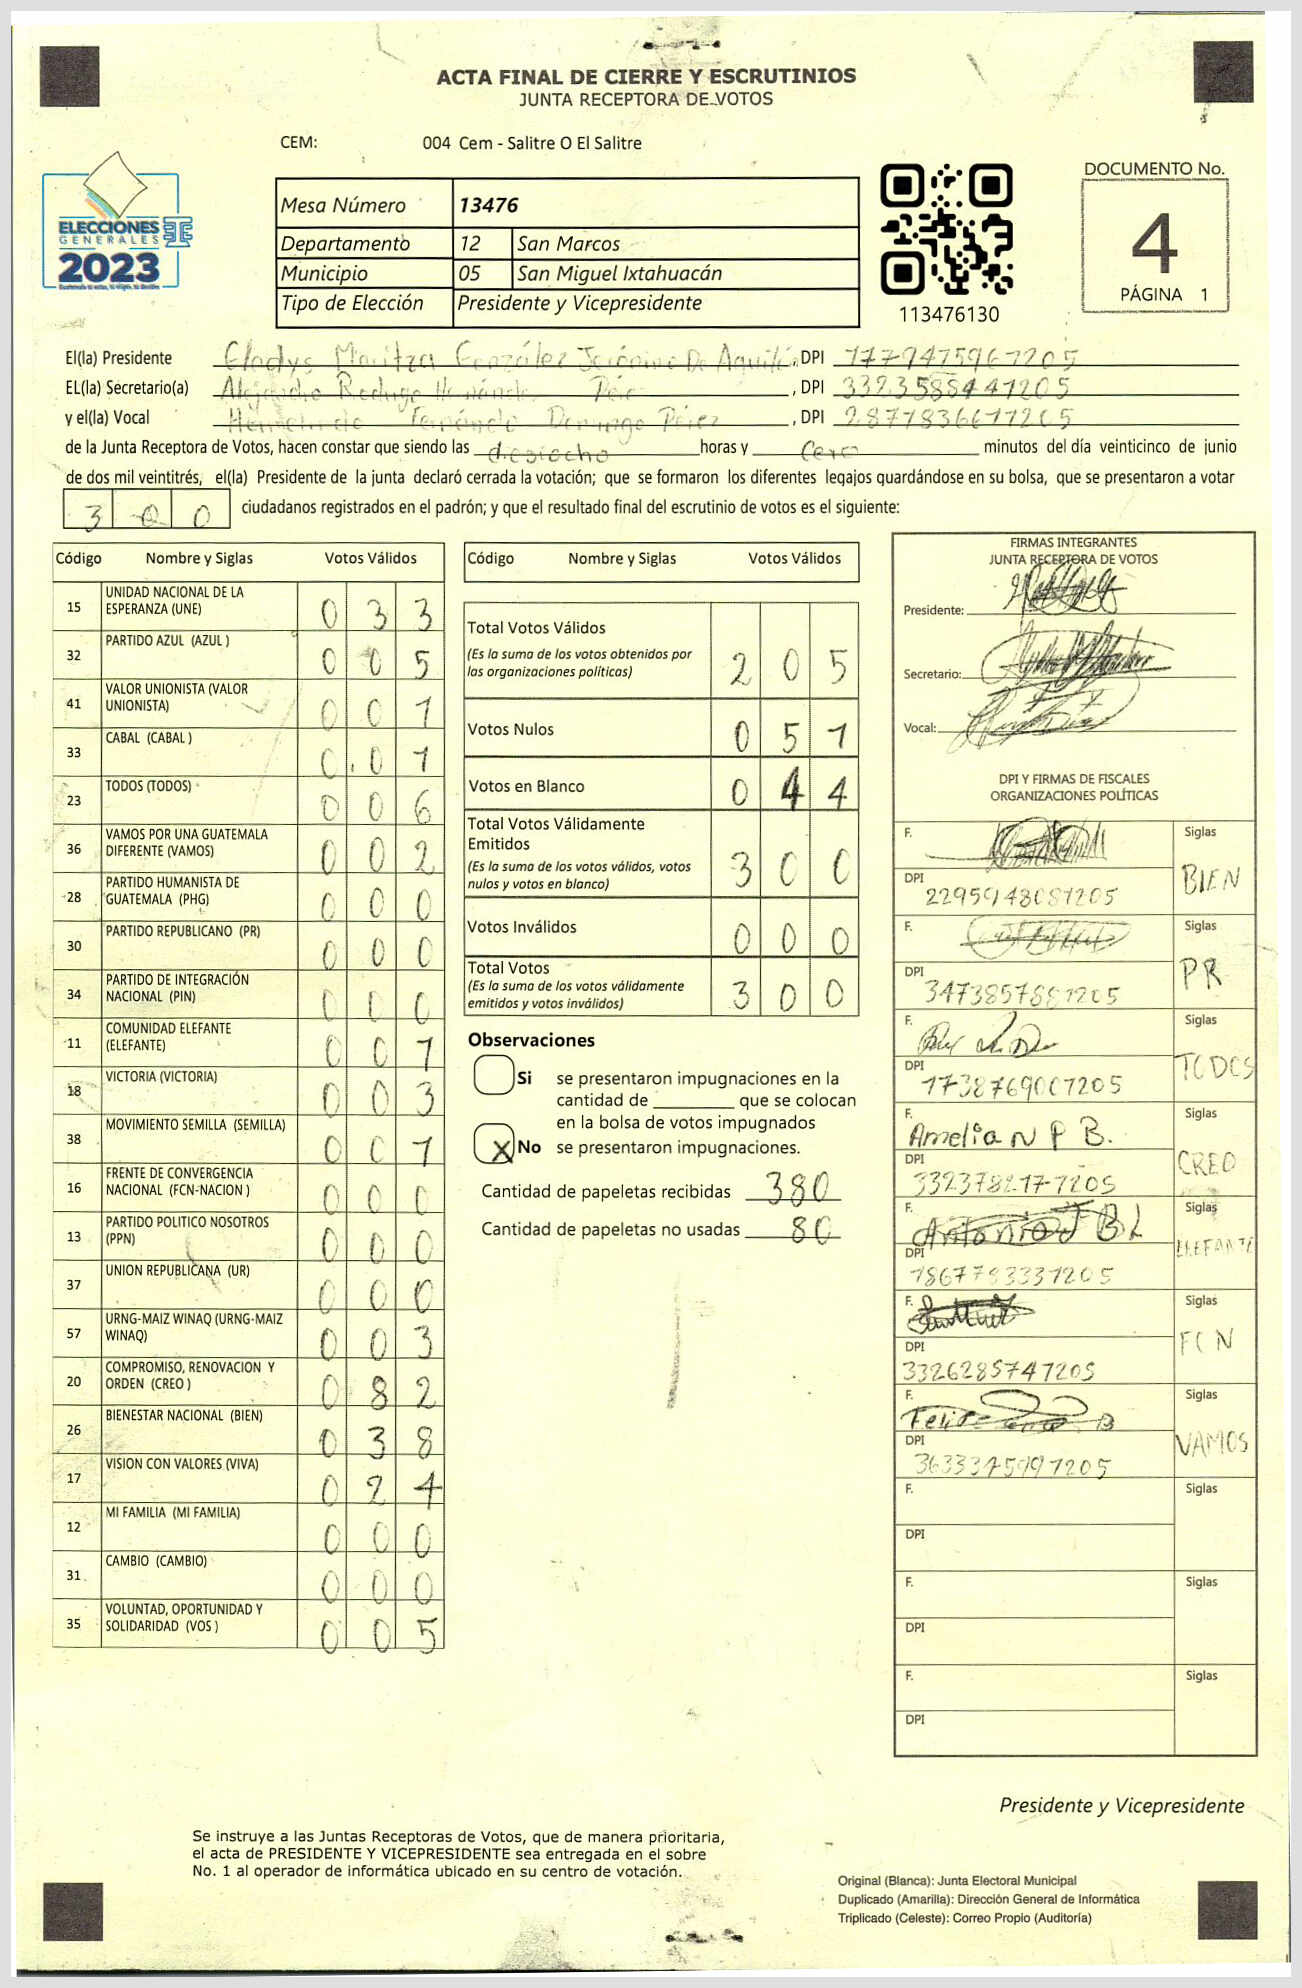 ACTA FINAL DE CIERRE Y ESCRUTINIOS
JUNTA RECEPTORA DE VOTOS
CEM: 004 Cem - Salitre O El Salitre
ELECCIONES
GENERALES
2023
Mesa Número 13476
Departamento 12 San Marcos
Municipio 05 San Miguel Ixtahuacán
Tipo de Elección Presidente y Vicepresidente
113476130
DOCUMENTO No.
4
PÁGINA 1
El(la) Presidente Gladys Maritza González Jerónimo De Aguilón, DPI
EL(la) Secretario(a) Alejandro Rodrigo Hernández, DPI 3323588441205
y el(la) Vocal Fernándo Domingo Pérez, DPI 2877836611205
de la Junta Receptora de Votos, hacen constar que siendo las dieciocho horas y cero minutos del día veinticinco de junio
de dos mil veintitrés, el(la) Presidente de la junta declaró cerrada la votación; que se formaron los diferentes legajos guardándose en su bolsa, que se presentaron a votar
300 ciudadanos registrados en el padrón; y que el resultado final del escrutinio de votos es el siguiente:
Código Nombre y Siglas Votos Válidos
15 UNIDAD NACIONAL DE LA ESPERANZA (UNE) 033
32 PARTIDO AZUL (AZUL ) 005
41 VALOR UNIONISTA (VALOR UNIONISTA) 001
33 CABAL (CABAL ) 001
23 TODOS (TODOS) 006
36 VAMOS POR UNA GUATEMALA DIFERENTE (VAMOS) 002
28 PARTIDO HUMANISTA DE GUATEMALA (PHG) 000
30 PARTIDO REPUBLICANO (PR) 000
34 PARTIDO DE INTEGRACIÓN NACIONAL (PIN) 000
11 COMUNIDAD ELEFANTE (ELEFANTE) 001
18 VICTORIA (VICTORIA) 003
38 MOVIMIENTO SEMILLA (SEMILLA) 001
16 FRENTE DE CONVERGENCIA NACIONAL (FCN-NACION ) 000
13 PARTIDO POLITICO NOSOTROS (PPN) 000
37 UNION REPUBLICANA (UR) 000
57 URNG-MAIZ WINAQ (URNG-MAIZ WINAQ) 003
20 COMPROMISO, RENOVACION Y ORDEN (CREO ) 082
26 BIENESTAR NACIONAL (BIEN) 038
17 VISION CON VALORES (VIVA) 024
12 MI FAMILIA (MI FAMILIA) 000
31 CAMBIO (CAMBIO) 000
35 VOLUNTAD, OPORTUNIDAD Y SOLIDARIDAD (VOS ) 005
Código Nombre y Siglas Votos Válidos
Total Votos Válidos 205
(Es la suma de los votos obtenidos por
las organizaciones políticas)
Votos Nulos 051
Votos en Blanco 044
Total Votos Válidamente
Emitidos 300
(Es la suma de los votos válidos, votos
nulos y votos en blanco)
Votos Inválidos 000
Total Votos 300
(Es la suma de los votos válidamente
emitidos y votos inválidos)
Observaciones
Si se presentaron impugnaciones en la
cantidad de ________ que se colocan
en la bolsa de votos impugnados
X No se presentaron impugnaciones.
Cantidad de papeletas recibidas 380
Cantidad de papeletas no usadas 80
FIRMAS INTEGRANTES
JUNTA RECEPTORA DE VOTOS
Presidente:
Secretario:
Vocal:
DPI Y FIRMAS DE FISCALES
ORGANIZACIONES POLÍTICAS
F. Siglas BIEN
DPI 2295948081205
F. Siglas PR
DPI 3473857881205
F. Siglas TODOS
DPI 1738769001205
F. Amelia N P B. Siglas CREO
DPI
F. Antonio BL Siglas ELEFANTE
DPI 1867793331205
F. Siglas FCN
DPI 3326285741205
F. Felipe B Siglas VAMOS
DPI
F. Siglas
DPI
F. Siglas
DPI
F. Siglas
DPI
Presidente y Vicepresidente
Se instruye a las Juntas Receptoras de Votos, que de manera prioritaria,
el acta de PRESIDENTE Y VICEPRESIDENTE sea entregada en el sobre
No. 1 al operador de informática ubicado en su centro de votación.
Original (Blanca): Junta Electoral Municipal
Duplicado (Amarilla): Dirección General de Informática
Triplicado (Celeste): Correo Propio (Auditoría)